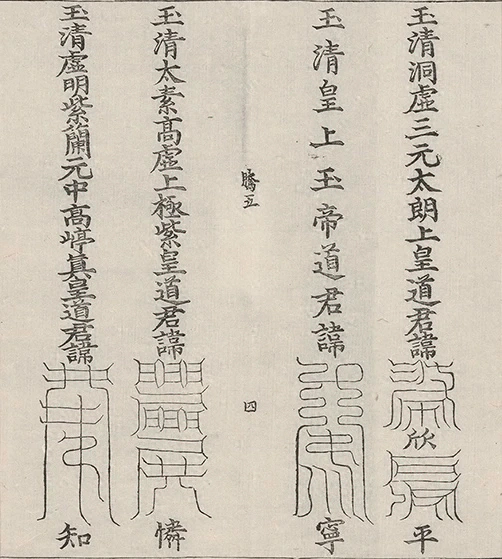 玉清洞虛三元太朗上皇道君諱
欣
平
玉清皇上玉帝道君諱
寧
騰五
四
玉清太素高虛上極紫皇道君諱
憐
玉清虛明紫蘭元中高㟁真皇道君諱
知